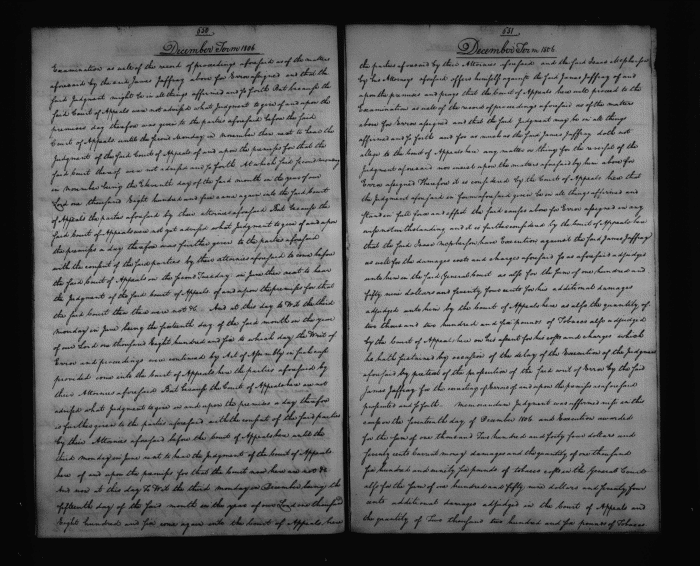 530
December Term 1806
Examination as well of the record of proceedings aforesaid as of the matters
aforesaid by the said James Jaffray above for Error assigned and that the
said Judgment might be in all things affirmed and so forth But because the
said Court of Appeals were not advised what Judgment to give of and upon the
premises day therefore was given to the parties aforesaid before the said
Court of Appeals until the second Monday in november then next to hear the
Judgment of the said Court of Appeals of and upon the premises for that the
said Court thereof were not advised and so forth At which said second monday
in november being the Eleventh day of the said month in the year of our
Lord one thousand Eight hundred and five came again into the said Court
of Appeals the parties aforesaid by their attornies aforesaid But because the
said Court of Appeals were not yet advised what Judgment to give of and upon
the premises a day therefore was further given to the parties aforesaid
with the consent of the said parties by their attornies aforesaid to come before
the said Court of Appeals on the second Tuesday in June then next to hear
the Judgment of the said Court of Appeals of and upon the premises for that
the said Court then there were not &c. And at this day to Wit the third
monday in June being the sixteenth day of the said month in the year
of our Lord one thousand Eight hundred and six to which day the Writ of
Error and proceedings were continued by Act of Assembly in such case
provided come into the Court of Appeals here the parties aforesaid by
their Attornies aforesaid But because the Court of Appeals here are not
advised what Judgment to give in and upon the premises a day therefore
is further given to the parties aforesaid with the consent of the said parties
by their Attornies aforesaid before the Court of Appeals here until the
third monday in June next to hear the Judgment of the Court of Appeals
here of and upon the premises for that the Court now here are not &c
And now at this day To Wit the third monday in December being the
fifteenth day of the said month in the year of our Lord one thousand
Eight hundred and six come again into the Court of Appeals here
531
December Term 1806.
the parties aforesaid by their Attornies aforesaid and the said Isaac
by his Attorney aforesaid offers himself against the said James Jaffray of and
upon the premises and prays that the Court of Appeals here will proceed to the
Examination as well of the record of proceedings aforesaid as of the matters
above for Error assigned and that the said Judgment may be in all things
affirmed and so forth and for as much as the said James Jaffray doth not
alledge to the Court of Appeals here any matter or thing for the reversal of the
Judgment aforesaid nor insist upon the matters aforesaid by him above for
Error assigned Therefore it is considered by the Court of Appeals here that
the Judgment aforesaid in form aforesaid given be in all things affirmed and
stand in full force and effect the said causes above for Error assigned in any
wise notwithstanding and it is further considered by the Court of Appeals here
that the said Isaac have Execution against the said James Jaffray
as well for the damages costs and charges aforesaid so as aforesaid adjudged
unto him in the said General Court as also the sum of one hundred and
fifty nine dollars and seventy four cents for his additional damages
adjudged unto him by the Court of Appeals here as also the quantity of
two thousand two hundred and six pounds of Tobacco also adjudged
by the Court of Appeals here on his assent for his costs and charges which
he hath sustained by occasion of the delay of the Execution of the Judgment
aforesaid by pretext of the prosecution of the said writ of Error by the said
James Jaffray for the reversing whereof and upon the premises aforesaid
prosecuted and so forth. Memorandum Judgment was affirmed nisi in this
cause the seventeenth day of December 1806 and Execution awarded
for the sum of one thousand Two hundred and forty four dollars and
seventy cents Current money damages and the quantity of one thousand
six hundred and ninety six pounds of tobacco costs in the General Court
also for the sum of one hundred and fifty nine dollars and seventy four
cents additional damages adjudged in the Court of Appeals and
the quantity of Two thousand two hundred and six pounds of Tobacco